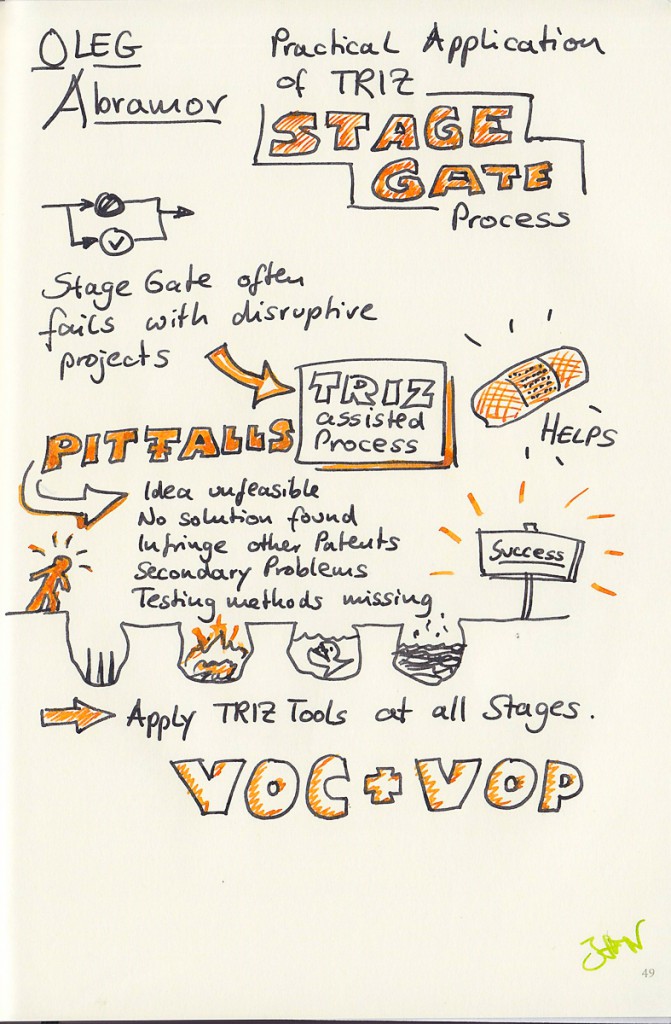 OLEG
Abramov
Practical Application
of TRIZ
STAGE
GATE
Process
Stage Gate often
fails with disruptive
projects
TRIZ
assisted
Process
HELPS
PITFALLS
Idea unfeasible
No solution found
Infringe other Patents
Secondary Problems
Testing methods missing
Success
Apply TRIZ Tools at all Stages.
VOC + VOP
49